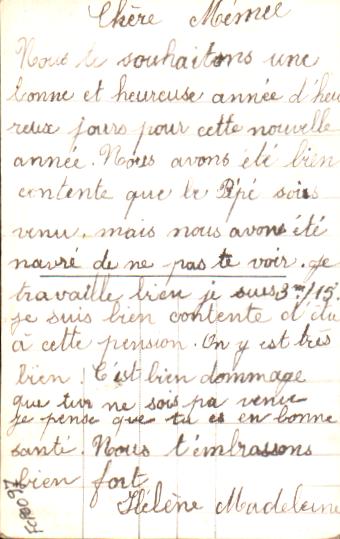 Chère Mémée
Nous te souhaitons une
bonne et heureuse année d'heu
reux jours pour cette nouvelle
année. Nous avons été bien
contente que le Pépé sois
venu, mais nous avons été
navré de ne pas te voir. Je
travaille bien je suis 3me/15.
je suis bien contente d'
à cette pension. On y est très
bien. C'est bien dommage
que tu ne sois pa venue
je pense que tu es en bonne
santé. Nous t'embrassons
bien fort
Hélène Madeleine